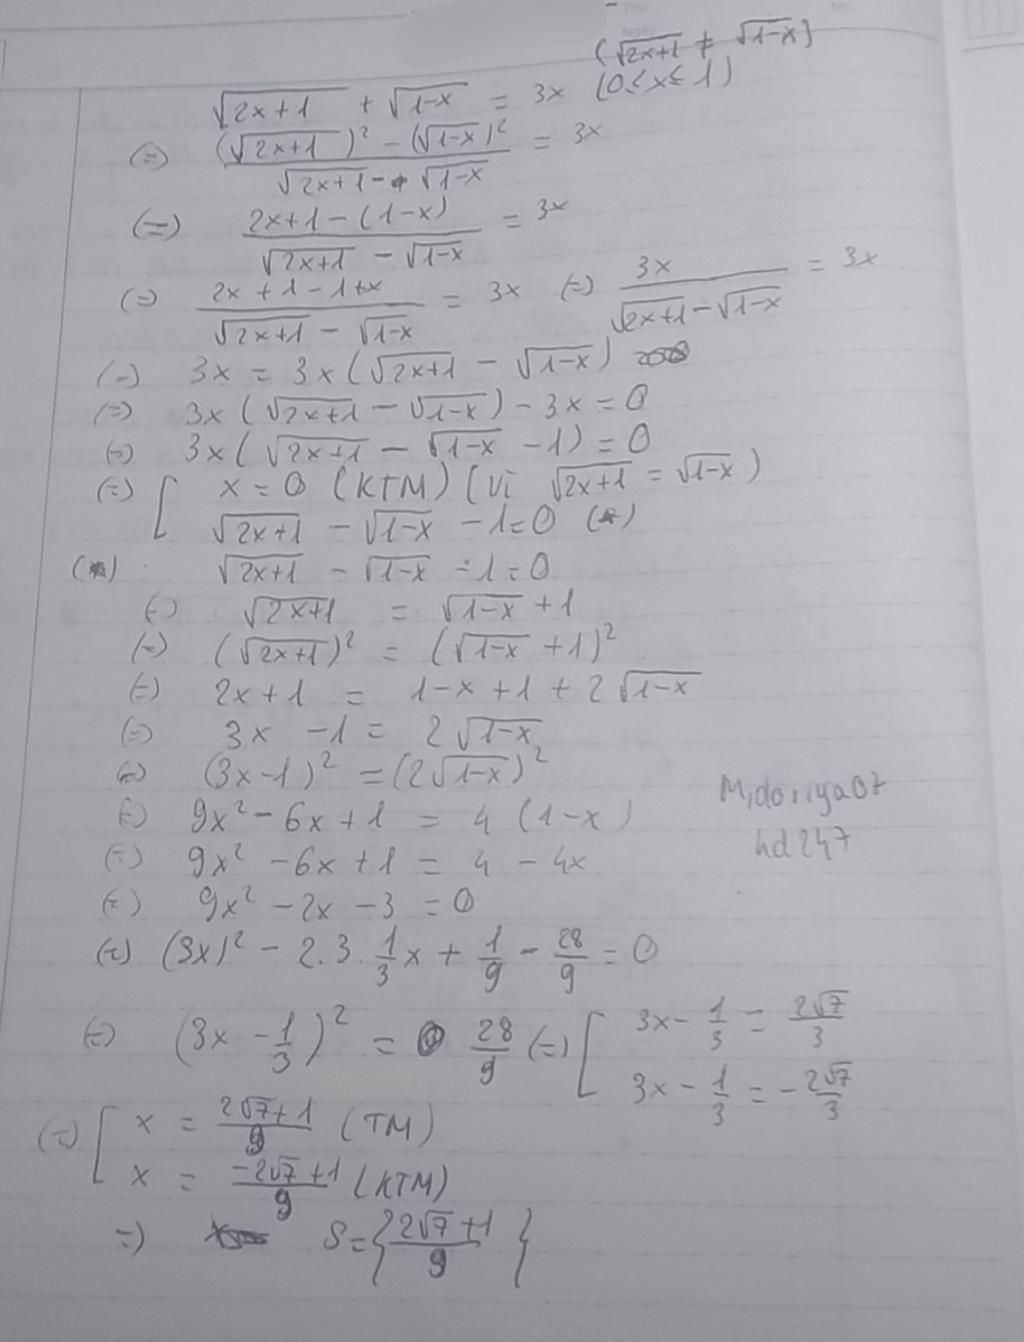 (√2x+1 ≠ √1-x)
√2x+1 + √1-x = 3x (0≤x≤1)
(=) (√2x+1)² - (√1-x)² / √2x+1 - √1-x = 3x
(=) 2x+1-(1-x) / √2x+1 - √1-x = 3x
(=) 2x+1-1+x / √2x+1 - √1-x = 3x (=) 3x / √2x+1 - √1-x = 3x
(=) 3x = 3x(√2x+1 - √1-x)
(=) 3x(√2x+1 - √1-x) - 3x = 0
(=) 3x(√2x+1 - √1-x - 1) = 0
(=) [ x = 0 (KTM) (vì √2x+1 = √1-x)
√2x+1 - √1-x - 1 = 0 (*)
(*) √2x+1 - √1-x - 1 = 0
(=) √2x+1 = √1-x + 1
(=) (√2x+1)² = (√1-x + 1)²
(=) 2x+1 = 1-x+1+2√1-x
(=) 3x - 1 = 2√1-x
(=) (3x-1)² = (2√1-x)²
(=) 9x² - 6x + 1 = 4(1-x)
(=) 9x² - 6x + 1 = 4 - 4x
(=) 9x² - 2x - 3 = 0
(=) (3x)² - 2.3.1/3x + 1/9 - 28/9 = 0
(=) (3x - 1/3)² = 28/9 (=) [ 3x - 1/3 = 2√7/3
3x - 1/3 = -2√7/3
(=) [ x = 2√7+1/9 (TM)
x = -2√7+1/9 (KTM)
=) S = {2√7+1/9}
hd247